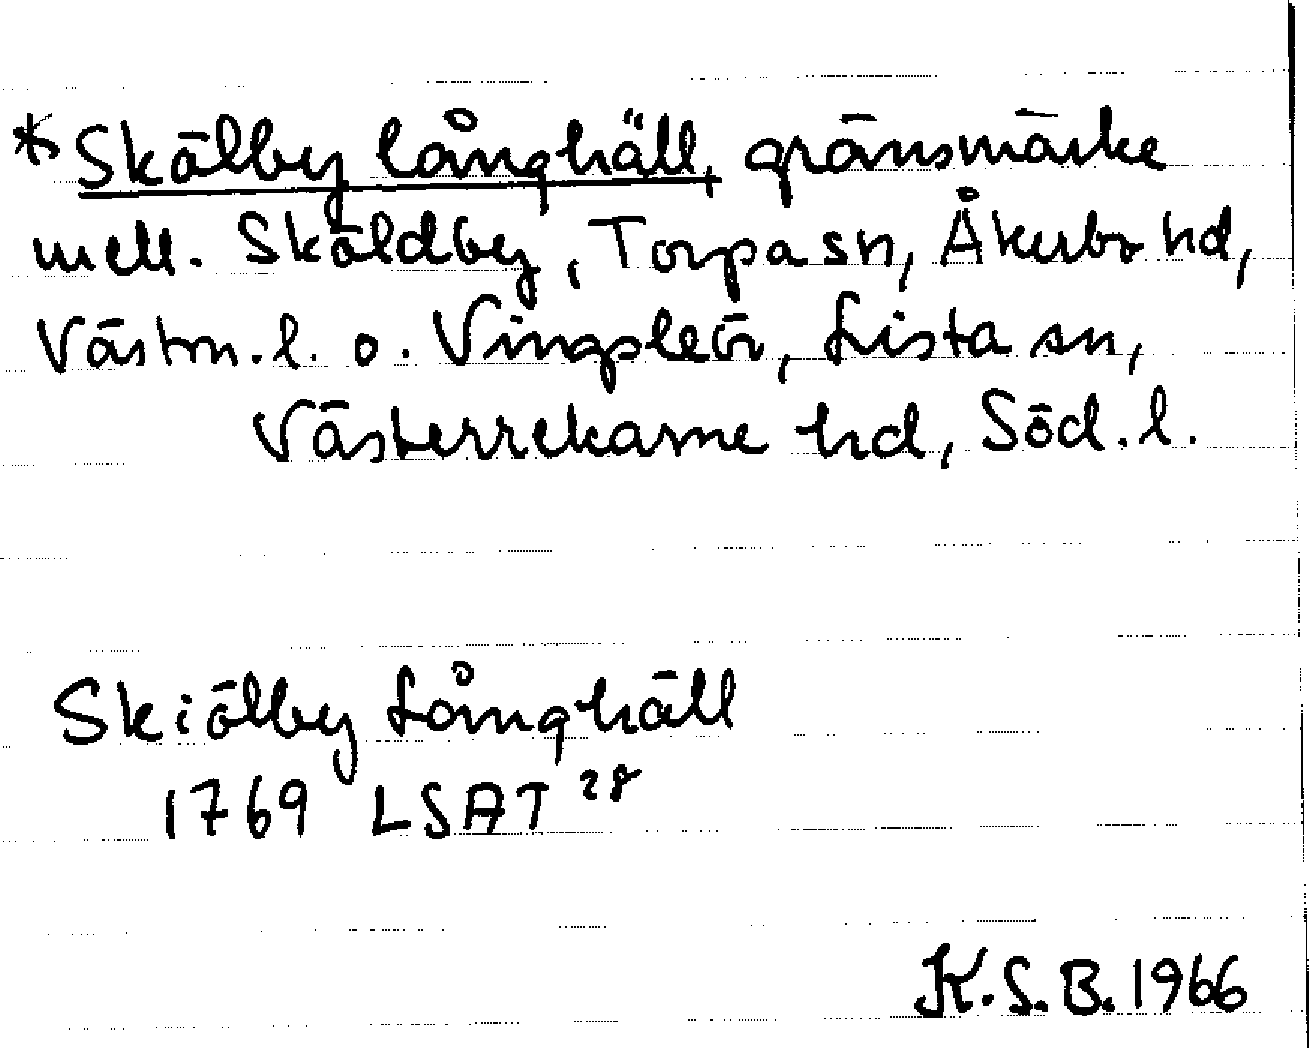 *Skälby långhäll, gränsmärke
mell. Sköldby, Torpa sn, Åkerbo hd,
Västm. l. o. Vingsleör, Lista sn,
Västerrekarne hd, Söd. l.
Skiölby Långhäll
1769 LSAT 28
K.S.B. 1966